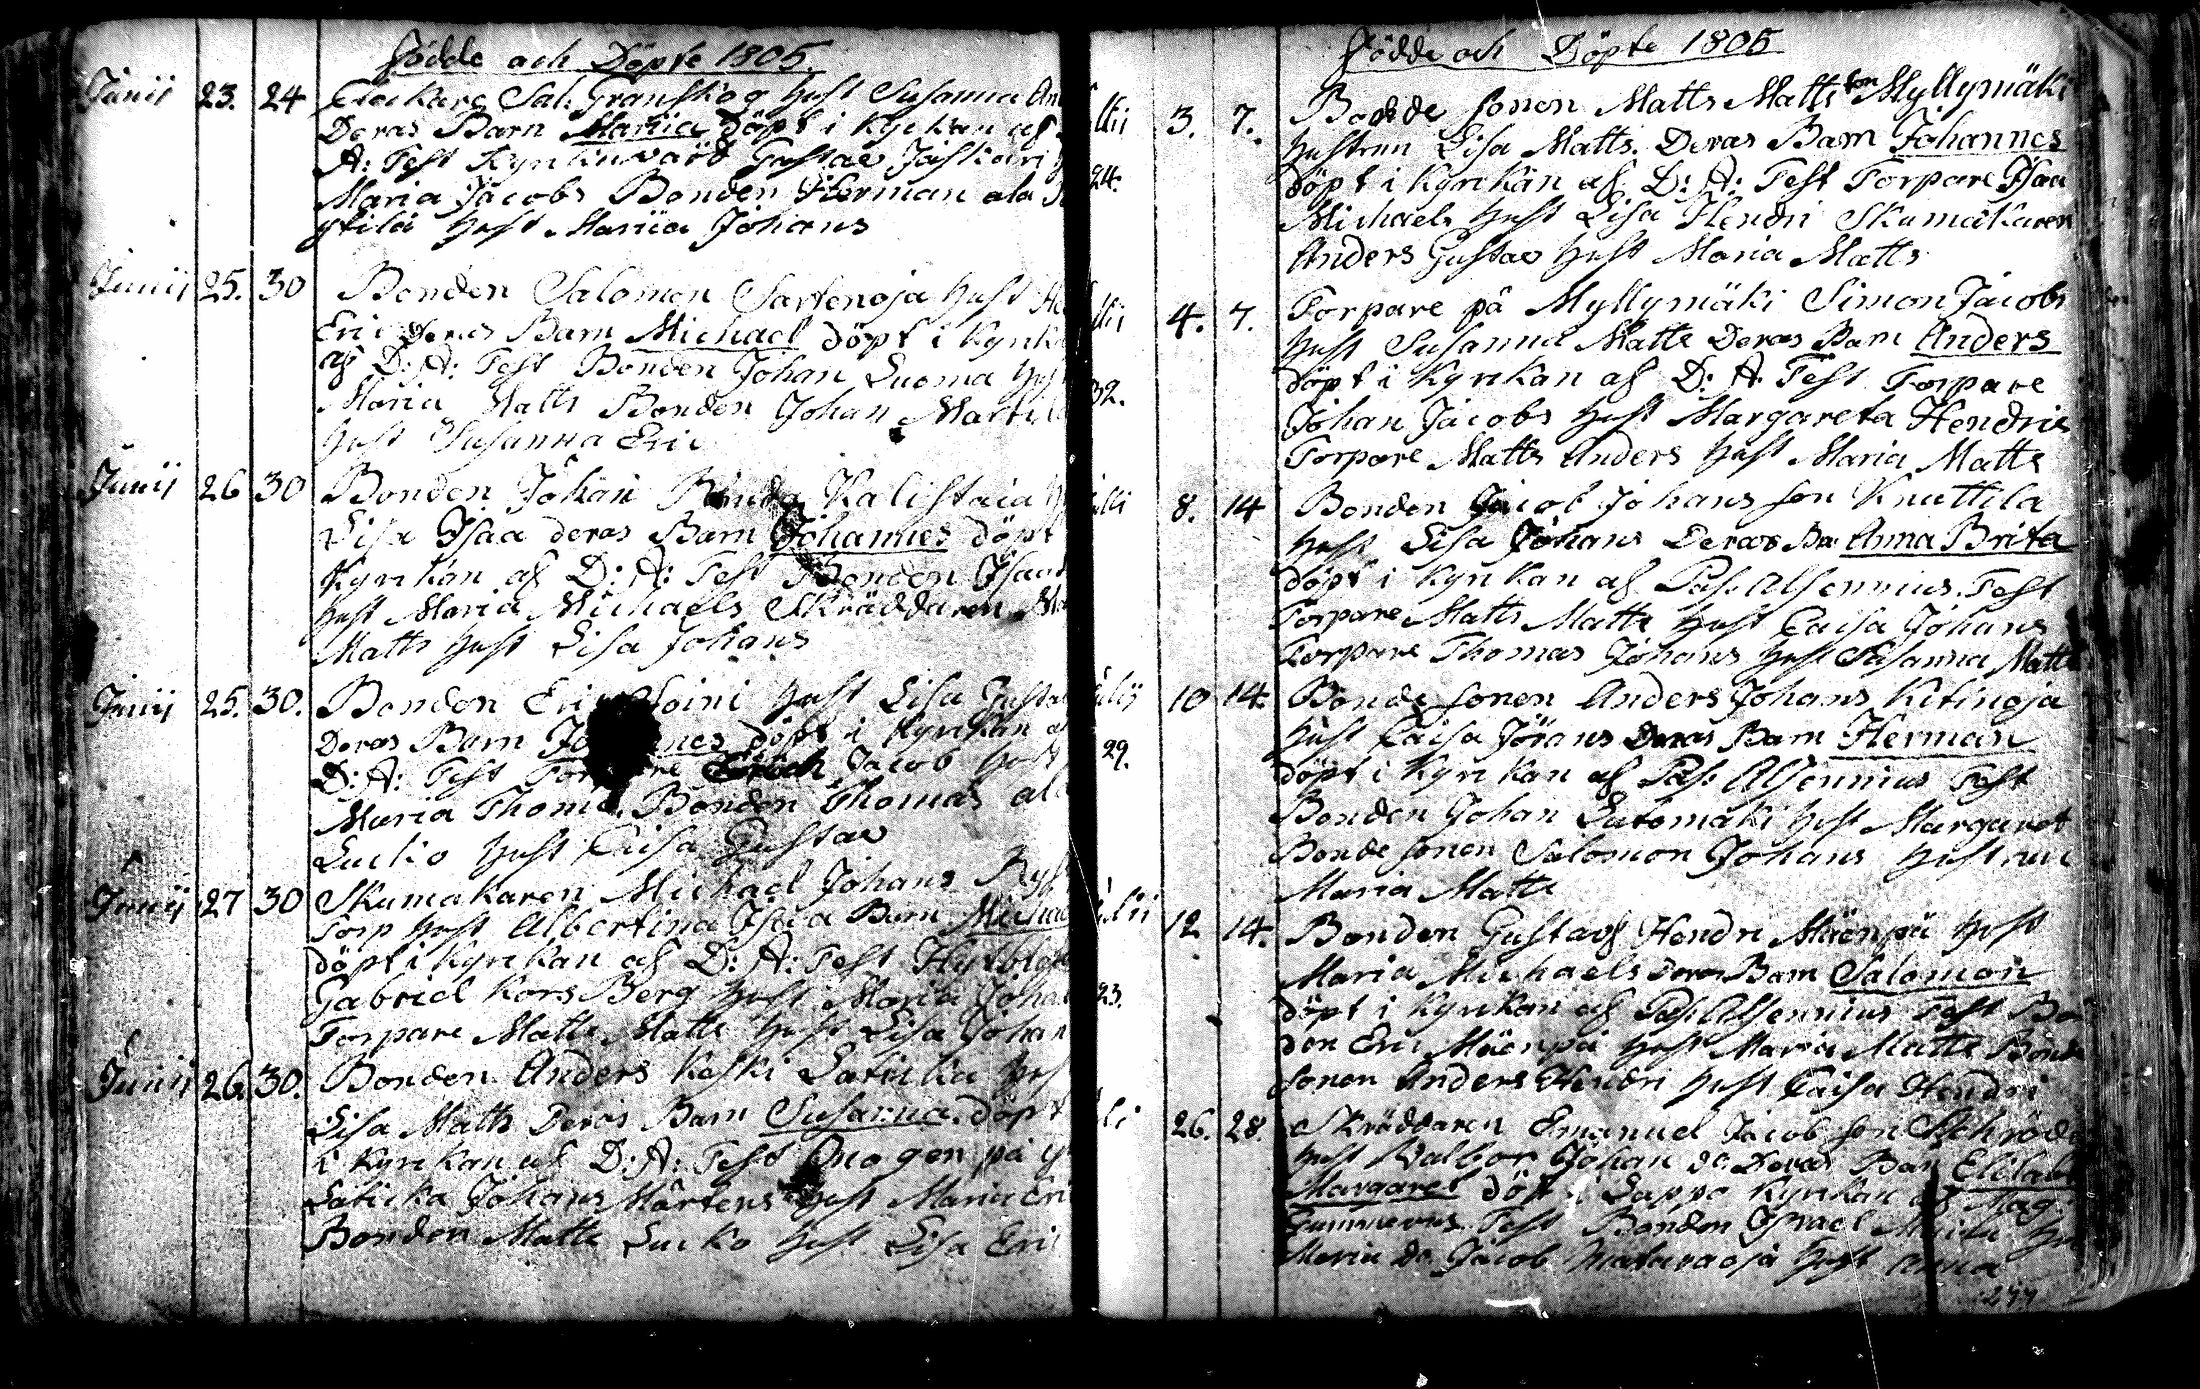 födde och Döpte 1805.
Junii 23. 24 Sal. Granskog Hust Susanna
Deras Barn Mariia döpt i Kyrkan af
A: Test Gustav
Maria Jacobs Bonden Herman ala
Hust Mariia Johans
Junii 25. 30 Bonden Salomon Sartenoja Hust
Eric Deras Barn Michael döpt i Kyrk
af D: A: Test Bonden Johan Luoma Hust
Maria Matts Bonden Johan Martil
Hust Susanna Eric
Junii 26 30 Bonden Johan Kalistaia
Lisa Isaa deras Barn Johannes döpt
Kyrkan af D: A: Test Bonden Isaa
Hust Maria Michaels Skräddaren
Matts Hust Lisa Johans
Junii 25. 30. Bonden Eric Soini Hust Lisa Gusta
Deras Barn Jo nes döpt i Kyrkan
D: A: Test Jacob Hust
Maria Thom Bonden Thomas ala
Lucko Hust Caisa Gustav
Junii 27 30 Skumakaren Michael Johans
Torp Hust Albertina Isaa Barn Michae
döpt i Kyrkan af D: A: Test
Gabriel KorsBerg Hust Maria Johan
Torpare Matts Matts Hust Lisa Johan
Junii 26. 30. Bonden Anders Keski Latikka Hus
Lisa Matts Deras Barn Susanna döpt
i Kyrkan af D: A: Test på
Latikka Johans Mårtens Hust Maria Eri
Bonden Matts Lucko Hust Lisa Eric
födde och Döpte 1805
3. 7. Bonde sonen Matts Mattsson Myllymäki
Hustrun Lisa Matts. Deras Barn Johannes
24. döpt i Kyrkan af D: A: Test Torpare Isaa
Michaels Hust Lisa Hendri Skumakaren
Anders Gustav Hust Maria Matts
4. 7. Torpare på Myllymäki Simon Jacobs
Hust Susanna Matts Deras Barn Anders
32. döpt i Kyrkan af D: A: Test Torpare
Johan Jacobs Hust Margareta Hendric
Torpare Matts Anders Hust Maria Matts
8. 14 Bonden Jacob Johans son Knuttila
Hust Lisa Johans Deras Ba: Anna Brita
döpt i Kyrkan af Past. Alcenius. Test
Torpare Matts Matts Hust Caisa Johans
Torpare Thomas Johans Hust Susanna Matts
10 14. Bonde sonen Anders Johans Kitinoja
Hust Caisa Jörans Deras Barn Herman
29. döpt i Kyrkan af Past. Alcenius Test
Bonden Johan Latomäki Hust Margaret
Bonde sonen Salomon Johans Hustrun
Maria Matts
12 14. Bonden Gustaf Hendri Mäenpä Hust
Maria Michaels Deras Barn Salomon
23. döpt i Kyrkan af Past. Alcenius Test Bo
den Eric Mäenpä Hust Maria Matts Bonde
sonen Anders Hendri Hust Caisa Hendri
26. 28. Skräddaren Emanuel Jacob son Schröde
Hust Valbor Johan do: Deras Barn Elisab
Margaret döpt i Lappo Kyrkan af Mag:
Gummerus Test Bonden Israel
Maria do Jacob Hust Anna